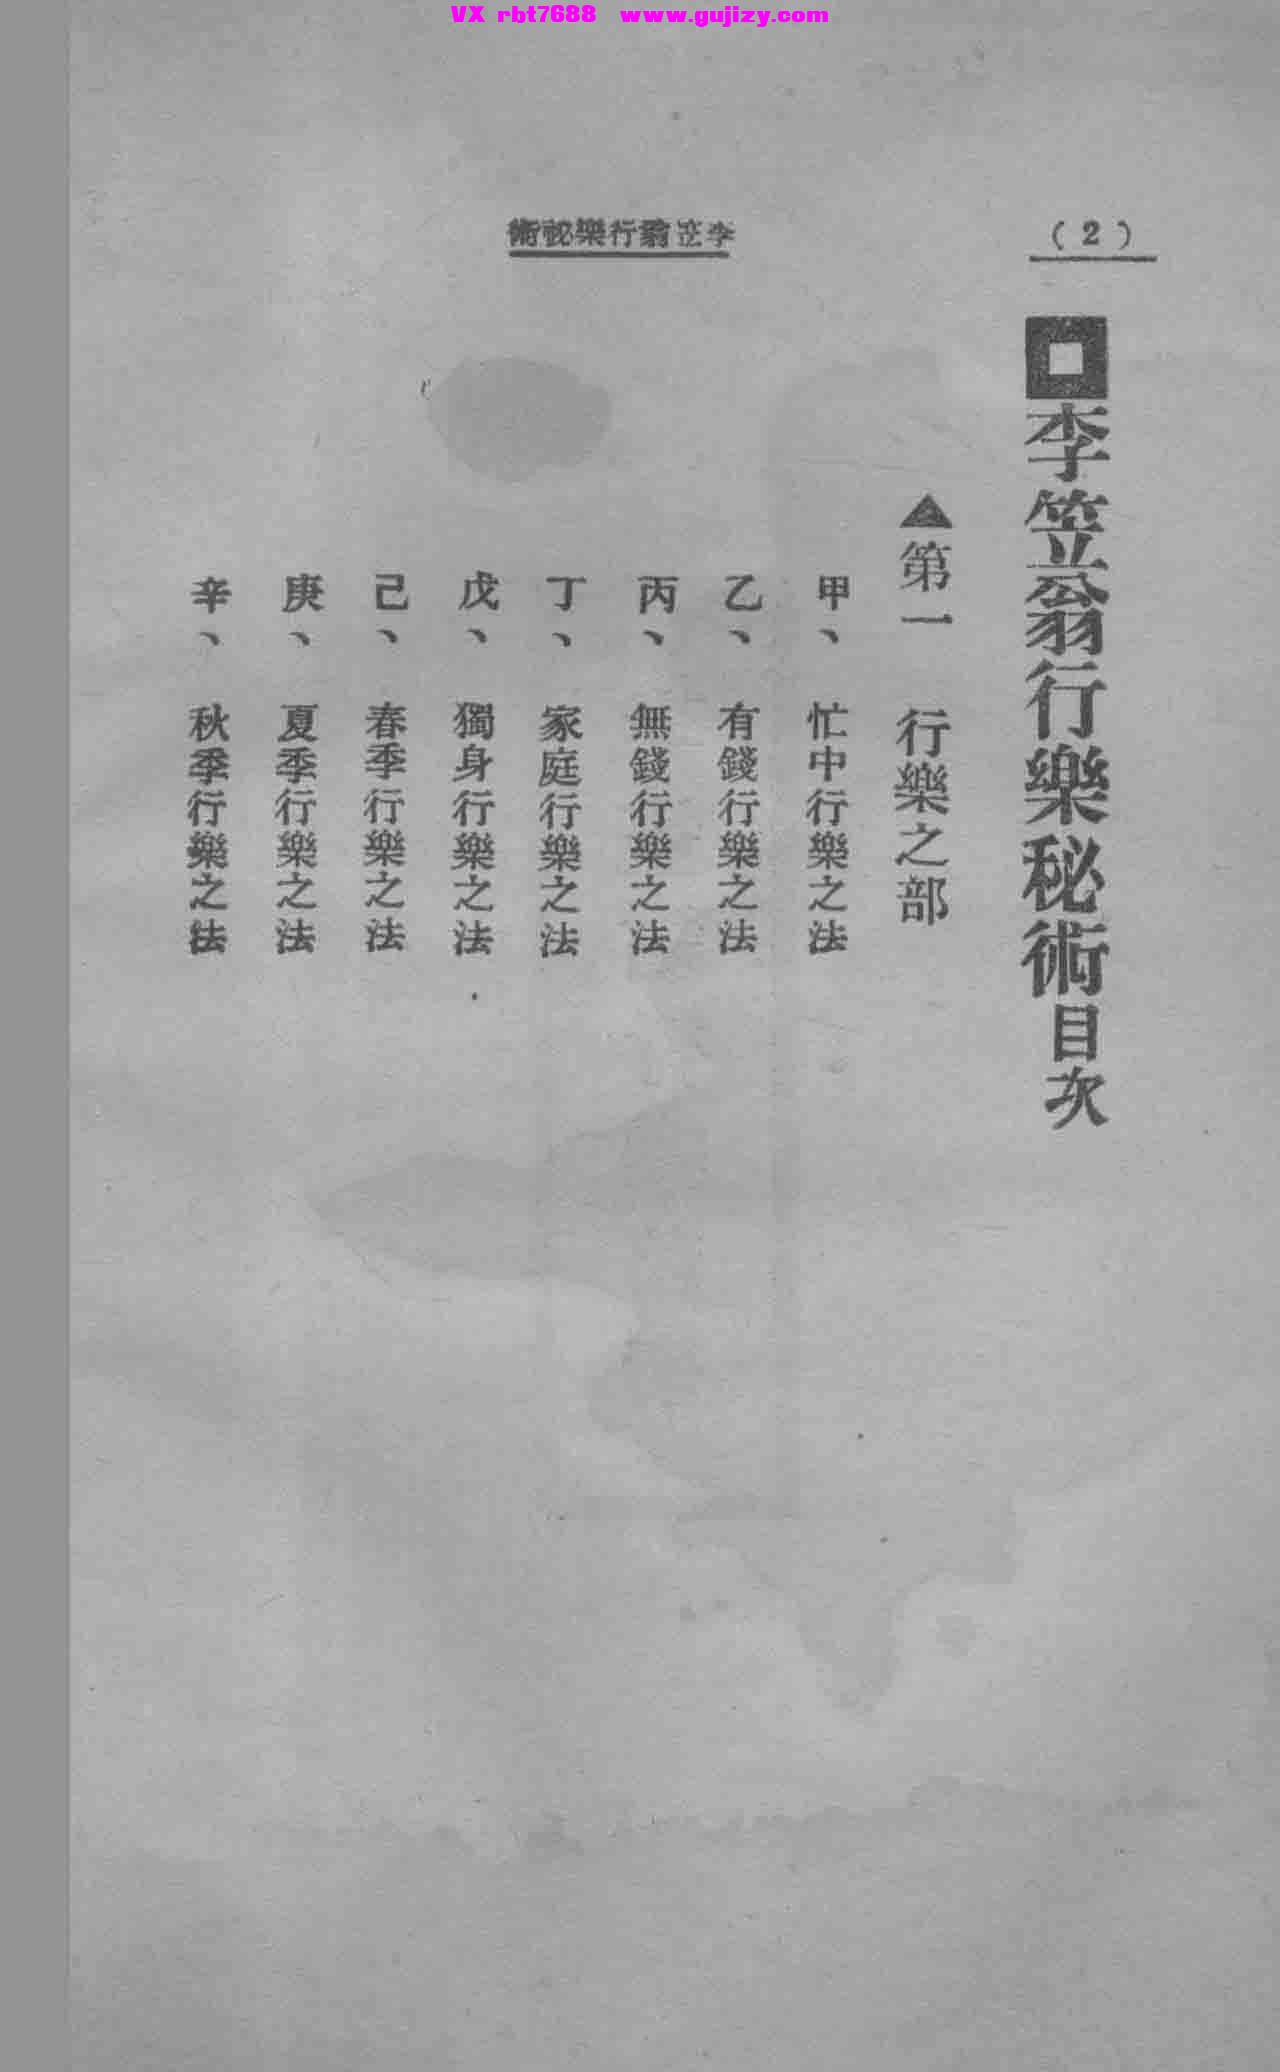 VX rbt7688 www.gujizy.com
(2)
李笠翁行樂秘術
李笠翁行樂秘術目次
▲第一 行樂之部
甲、 忙中行樂之法
乙、 有錢行樂之法
丙、 無錢行樂之法
丁、 家庭行樂之法
戊、 獨身行樂之法
己、 春季行樂之法
庚、 夏季行樂之法
辛、 秋季行樂之法